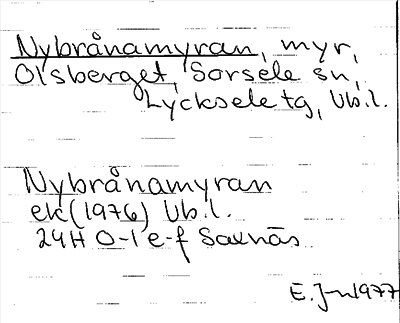 Nybrånamyran, myr,
Olsberget, Sorsele sn,
Lycksele tg, Vb. l.
Nybrånamyran
ek (1976) Vb. l.
24H 0-1 e-f Saxnäs
E. J-n 1977